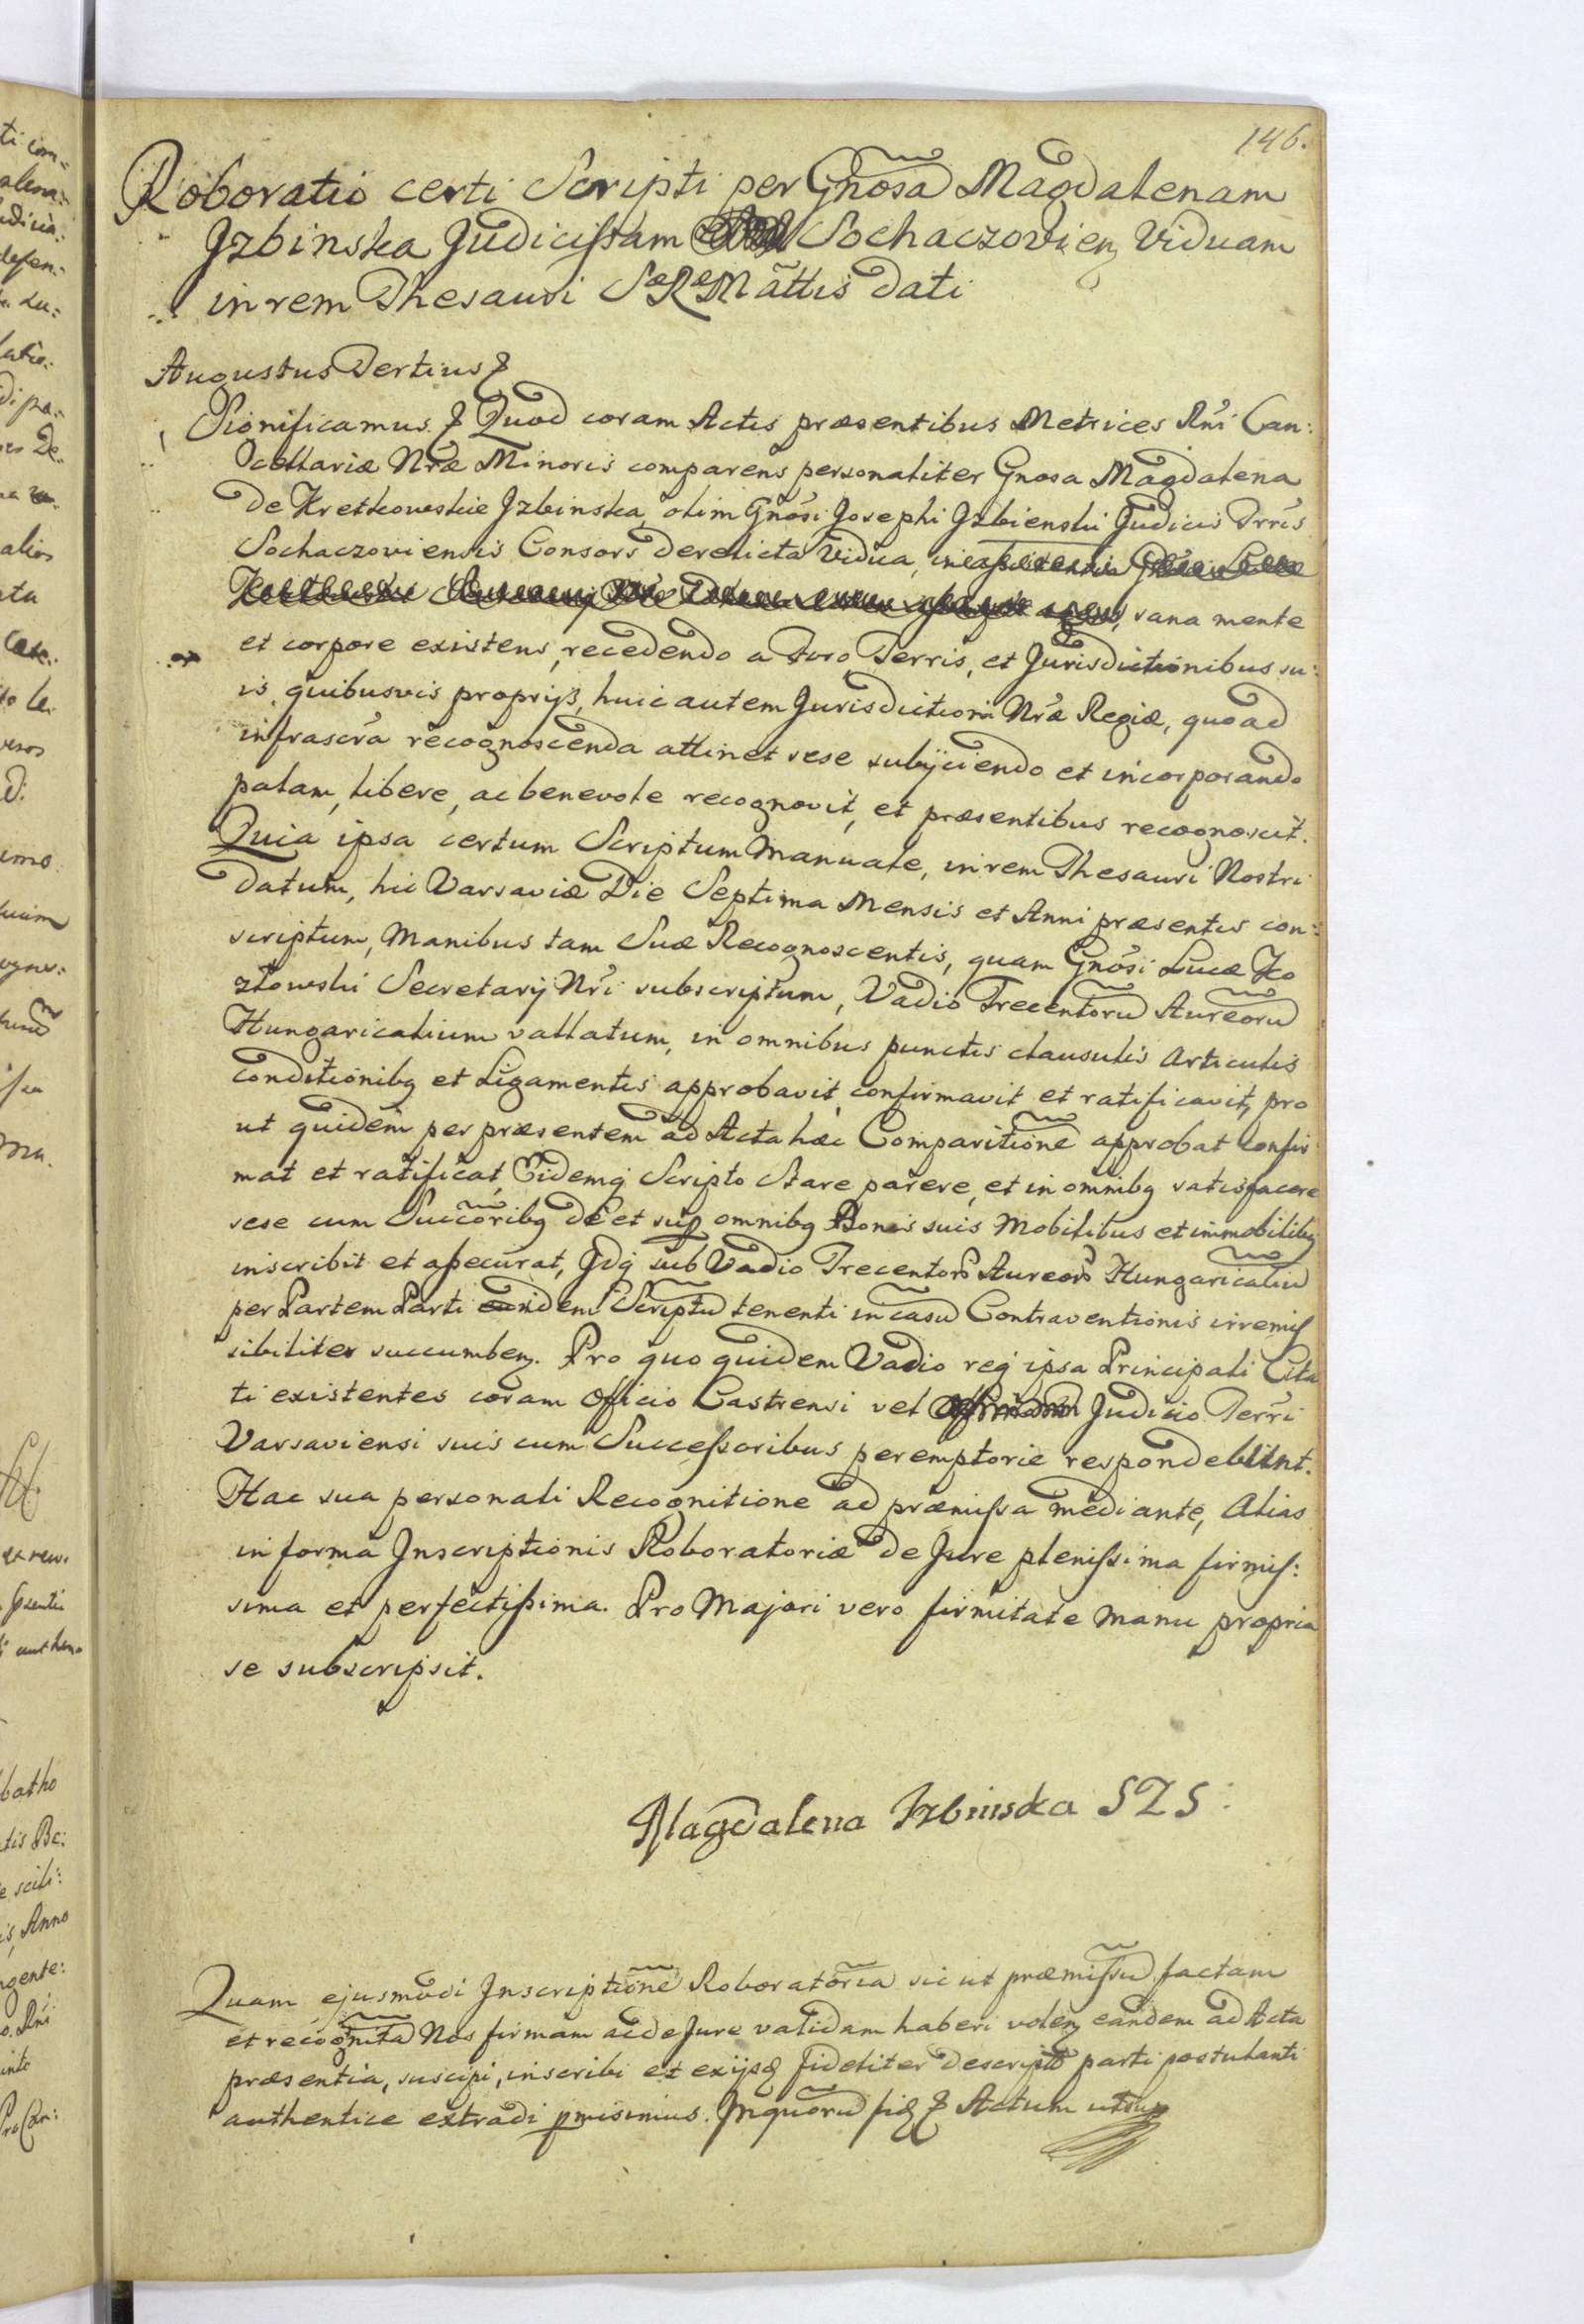 146.
Roboratio certi Scripti per Gnosa Magdalenam
Jzbinska Judicissam Sochaczovien Viduam
in rem Thesauri SæRæMāttis dati
Augustus Tertius
Significamus Quod coram Actis præsentibus Metrices Rni Can:
cellariæ Nræ Minoris comparens personaliter Gnosa Magdalena
de Kretkowskie Jzbinska, olim Gnōsi Josephi Jzbienski Judicis Trris
Sochaczoviensis Consors derelicta Vidua,
sana mente
et corpore existens, recedendo a Foro, Terris, et Jurisdictionibus su:
is quibusvis proprijs, huic autem Jurisdictioni Nræ Regiæ, quoad
infrascra recognoscenda attinet sese subijciendo et incorporando
palam, libere, ac benevole recognovit, et præsentibus recognoscit.
Quia ipsa certum Scriptum Manuale, in rem Thesauri Nostri
datum, hic Varsaviæ Die Septima Mensis et Anni præsentis con:
scriptum, Manibus tam Suæ Recognoscentis, quam Gnōsi Lucæ Ko
złowski Secretarij Nri subscriptum, Vadio Trecentoru Aureoru
Hungaricalium vallatum, in omnibus punctis clausulis Articulis
Conditionibq et Ligamentis approbavit, confirmavit et ratificavit, pro
ut quidem per præsentem ad Acta hæc Comparitione approbat confir
mat et ratificat, Eidemq Scripto Stare parere, et in omnibq satisfacere
sese cum Succoribq de et sup omnibq Bonis suis Mobilibus et immobilibq
inscribit et assecurat, Jdq sub Vadio Trecentor Aureor Hungaricaliu
per Partem Parti eidem Scriptu tenenti in casu Contraventionis irremis
sibiliter succumben. Pro quo quidem Vadio req ipsa Principali Cita
ti existentes coram Officio Castrensi vel Judicio Terri
Varsaviensi suis cum Successoribus peremptorie respondebunt.
Hac sua personali Recognitione ad præmissa mediante, Alias
in forma Jnscriptionis Roboratoriæ de Jure plenissima firmis:
sima et perfectissima. Pro Majori vero firmitate manu propria
se subscripsit.
Magdalena Izbinska S Z S:
Quam ejusmodi Jnscriptione Roboratoria sic ut præmissu factam
et recognita Nos firmam ac de Jure validam haberi volen eandem ad Acta
præsentia, suscipi, inscribi et exijsq fideliter descripta parti postulanti
authentice extradi pmisimus. Jn quoru fid Actum ut sup